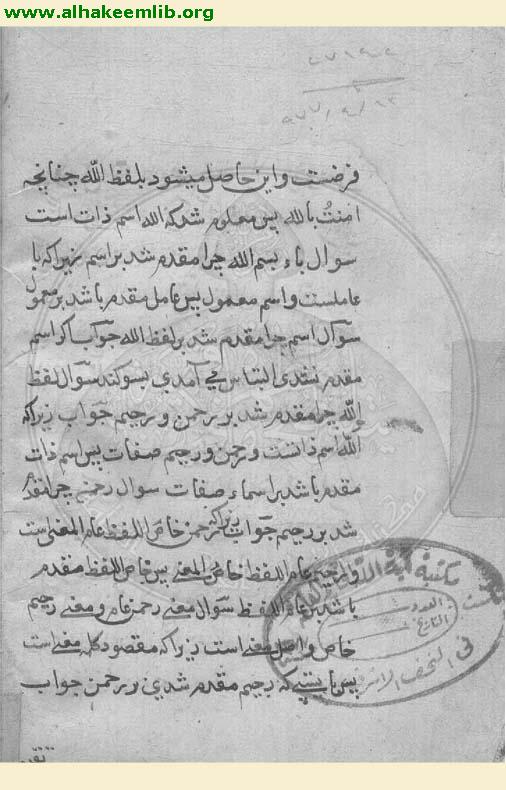 www.alhakeemlib.org
فرضست واین حاصل میشود بلفظ الله چنانچه
امنتُ بالله پس معلوم شد که الله اسم ذات است
سوال باء بسم الله چرا مقدم شد بر اسم زیراکه با
عاملست واسم معمول پس عامل مقدم باشد بر معمول
سوال اسم چرا مقدم شد بر لفظ الله جواب اگر اسم
مقدم نشدی التباس می آمدی بسوکند سوال لفظ
الله چرا مقدم شد بر رحمن و رحیم جواب زیراکه
الله اسم ذاتست ورحمن ورحیم صفات پس اسم ذات
مقدم باشد بر اسماء صفات سوال رحمن چرا مقدم
شد بر رحیم جواب زیراکه رحمن خاص اللفظ عام المعنی است
ورحیم عام اللفظ خاص المعنی پس خاص اللفظ مقدم
باشد بر عام اللفظ سوال معنی رحمن عام ومعنی رحیم
خاص واصل معنی است زیراکه مقصود کلمه معنی است
پس بایستی که رحیم مقدم شدی بر رحمن جواب
مكتبة آية الله
العدد
التاريخ
في النجف الاشرف